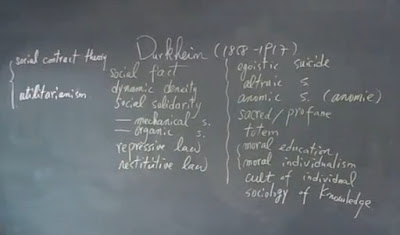 Durkheim (1858-1917)
social contract theory
utilitarianism
social fact
dynamic density
social solidarity
— mechanical s.
— organic s.
repressive law
restitutive law
egoistic suicide
altruic s.
anomic s. (anomie)
sacred/profane
totem
moral education
moral individualism
cult of individual
sociology of Knowledge